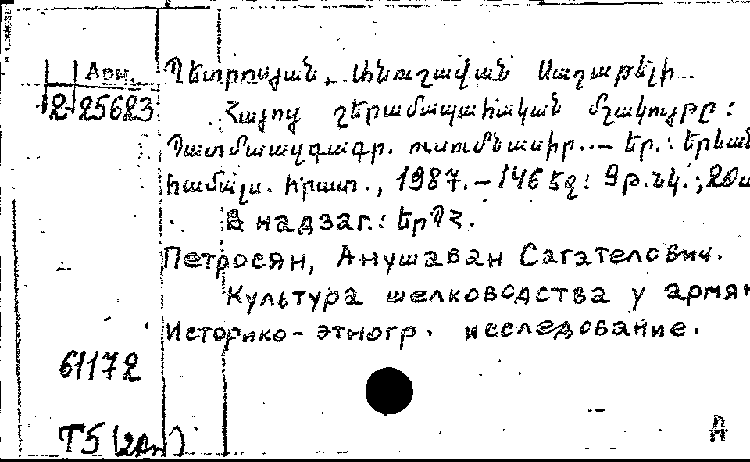 Арм.
2-25623
Պետրոսյան, Անուշավան Սաղաթելի
Հայոց շերամապահական մշակույթը:
Պատմաազգագր. ուսումնասիր. - Եր.: Երևան
համալս. հրատ., 1987. - 146 էջ: 9 թ. նկ.; 20
В надзаг.: ԵրՊՀ.
Петросян, Анушаван Сагателович.
Культура шелководства у армян
Историко-этногр. исследование.
61172
Т5(2Ар)
А